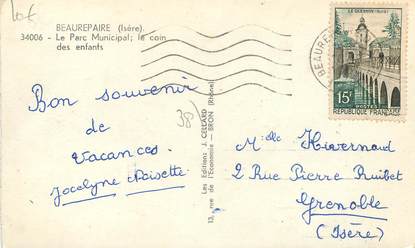 10€
BEAUREPAIRE (Isére).
34006 - Le Parc Municipal; le coin
des enfants
Bon souvenir
de
vacances.
Jocelyne Noisette
38)
Les Editions J. CELLARD
13, rue de l'Economie - BRON (Rhône)
BEAUREP
LE QUESNOY (Nord)
15F
POSTES
RÉPUBLIQUE FRANÇAISE
Melle Hivernaud
2 Rue Pierre Ruibet
Grenoble
(Isère)